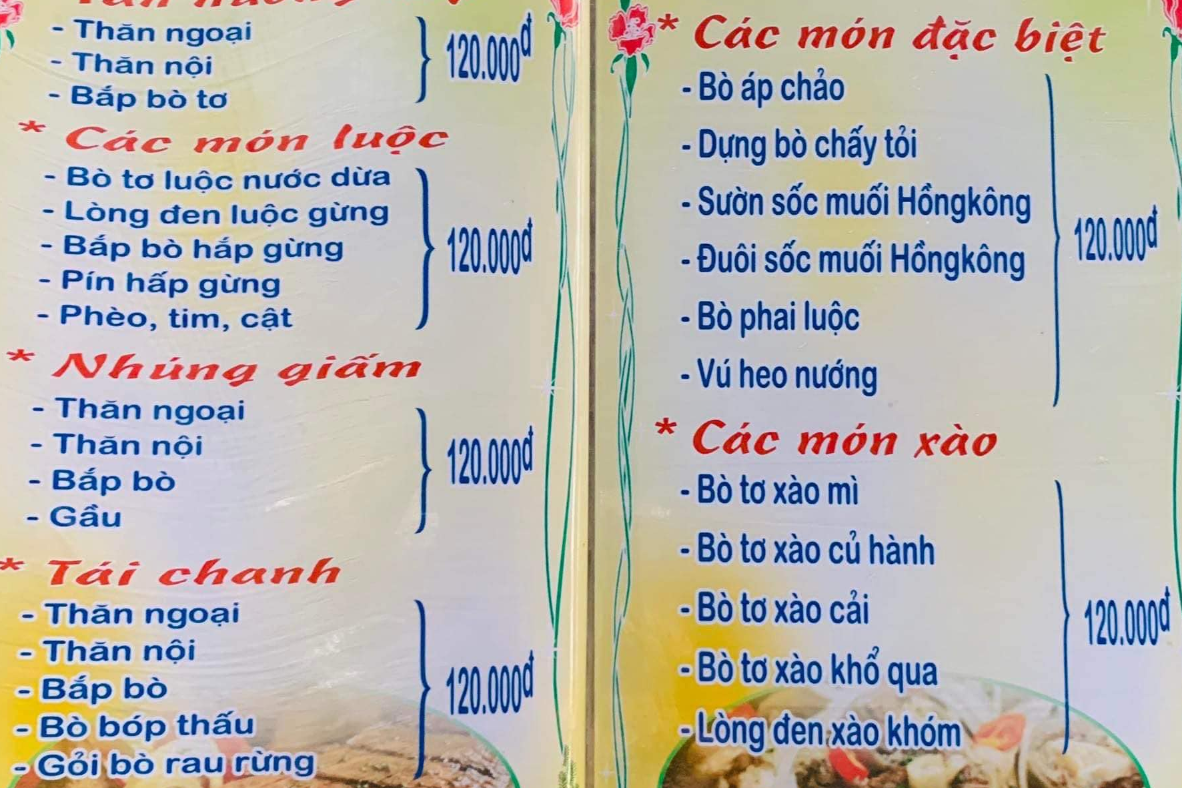 - Thăn ngoại
- Thăn nội
- Bắp bò tơ
120.000đ
* Các món luộc
- Bò tơ luộc nước dừa
- Lòng đen luộc gừng
- Bắp bò hắp gừng
- Pín hấp gừng
- Phèo, tim, cật
120.000đ
* Nhúng giấm
- Thăn ngoại
- Thăn nội
- Bắp bò
- Gầu
120.000đ
* Tái chanh
- Thăn ngoại
- Thăn nội
- Bắp bò
- Bò bóp thấu
- Gỏi bò rau rừng
120.000đ
* Các món đặc biệt
- Bò áp chảo
- Dựng bò chấy tỏi
- Sườn sốc muối Hồngkông
- Đuôi sốc muối Hồngkông
- Bò phai luộc
- Vú heo nướng
120.000đ
* Các món xào
- Bò tơ xào mì
- Bò tơ xào củ hành
- Bò tơ xào cải
- Bò tơ xào khổ qua
- Lòng đen xào khóm
120.000đ